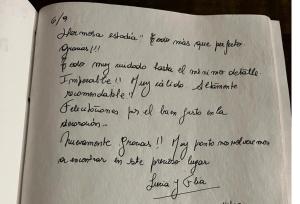 6/9
Hermosa estadía" Todo más que perfecto
Gracias!!!
Todo muy cuidado hasta el mínimo detalle.
Impecable!! Muy cálido Altamente
recomendable!!
Felicitaciones por el buen gusto en la
decoración.
Nuevamente Gracias!! Muy pronto nos volveremos
a encontrar en este precioso lugar
Lucia y